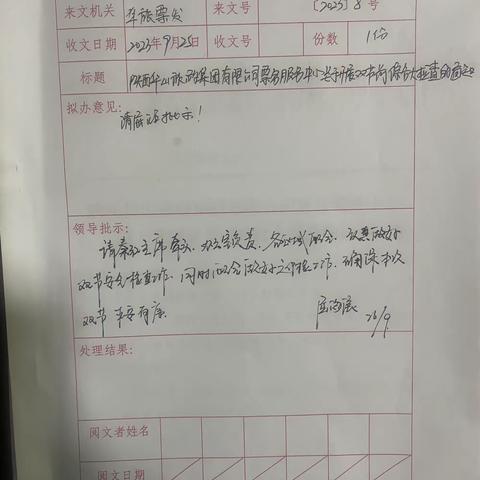 来文机关 华旅票发 来文号 〔2023〕8号
收文日期 2023年9月25日 收文号 份数 1份
标题 陕西华山旅游集团有限公司票务服务中心关于开展双节前综合大检查的通知
拟办意见：
请 批示！
领导批示：
请 主席牵头，办公室负责，各 配合，认真做好
双节安全检查工作，同时配合做好 检查工作，确保本次
双节平安有序。
26/9
处理结果：
阅文者姓名
阅文日期